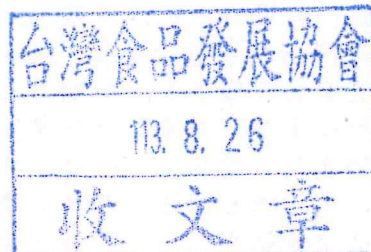 台灣食品發展協會
113. 8. 26
收文章